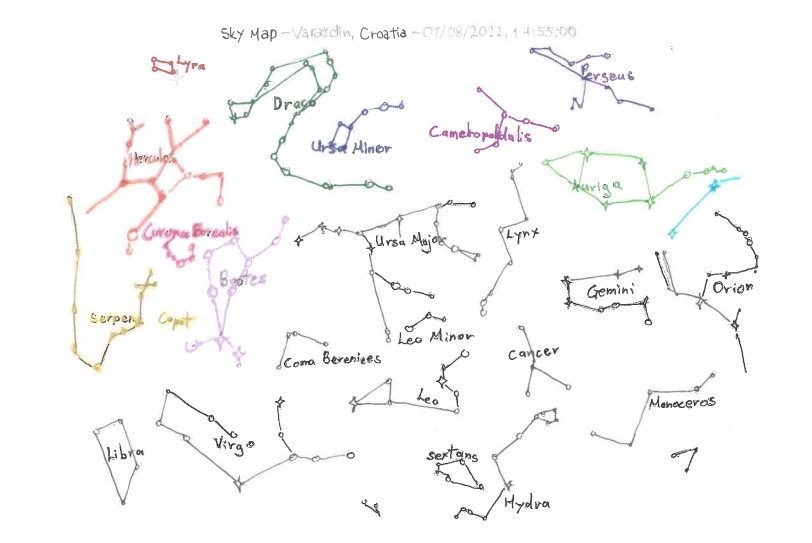 Sky Map - Varaždin, Croatia - 07/08/2022, 14:55:00
Lyra
Draco
Perseus
Ursa Minor
Camelopardalis
Hercules
Auriga
Corona Borealis
Ursa Major
Lynx
Bootes
Gemini
Orion
Serpens Caput
Leo Minor
Coma Berenices
Cancer
Leo
Monoceros
Libra
Virgo
Sextans
Hydra